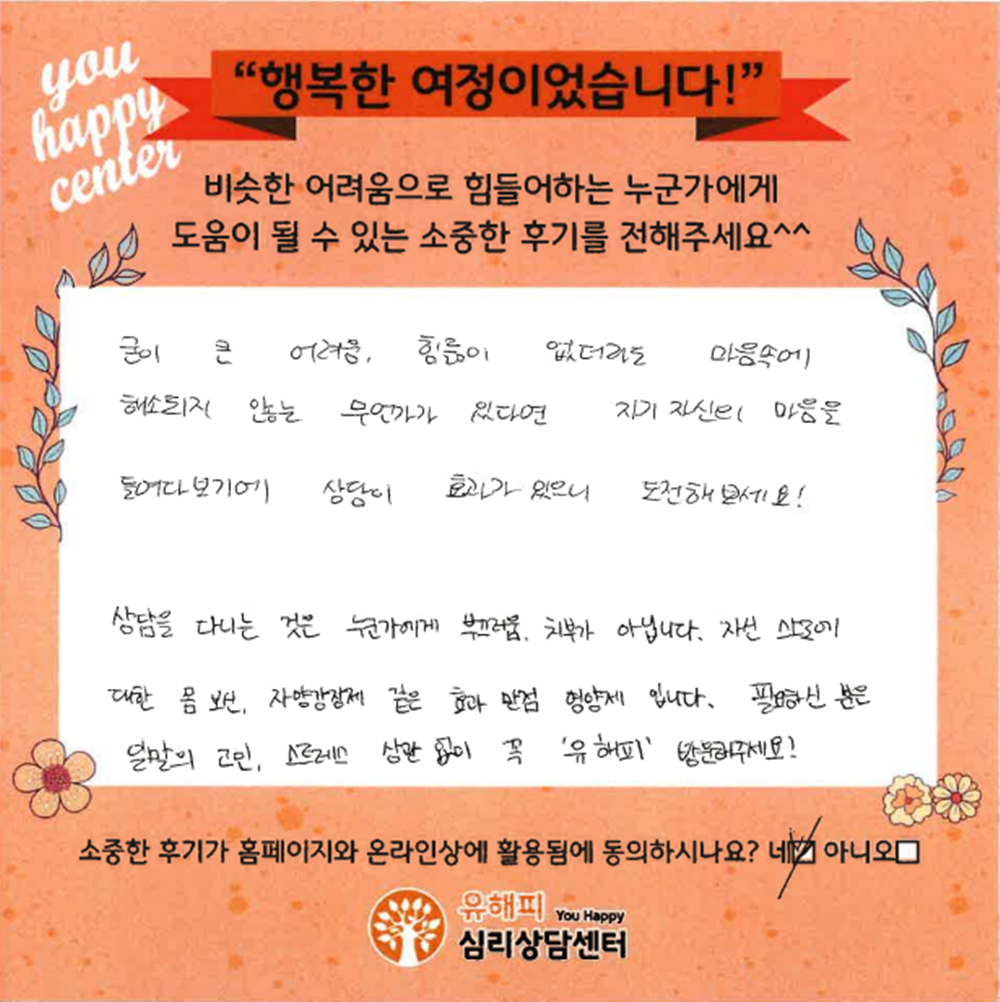 you
happy
center
“행복한 여정이었습니다!”
비슷한 어려움으로 힘들어하는 누군가에게
도움이 될 수 있는 소중한 후기를 전해주세요^^
굳이 큰 어려움, 힘듦이 없더라도 마음속에
해소되지 않는 무언가가 있다면 자기 자신의 마음을
들여다보기에 상담이 효과가 있으니 도전해 보세요!
상담을 다니는 것은 누군가에게 부끄러움, 치부가 아닙니다. 자신 스스로에
대한 몸 보신, 자양강장제 같은 효과 만점 영양제 입니다. 필요하신 분은
일말의 고민, 스트레스 상관 없이 꼭 '유해피' 방문해주세요!
소중한 후기가 홈페이지와 온라인상에 활용됨에 동의하시나요? 네☑ 아니오☐
유해피 You Happy
심리상담센터